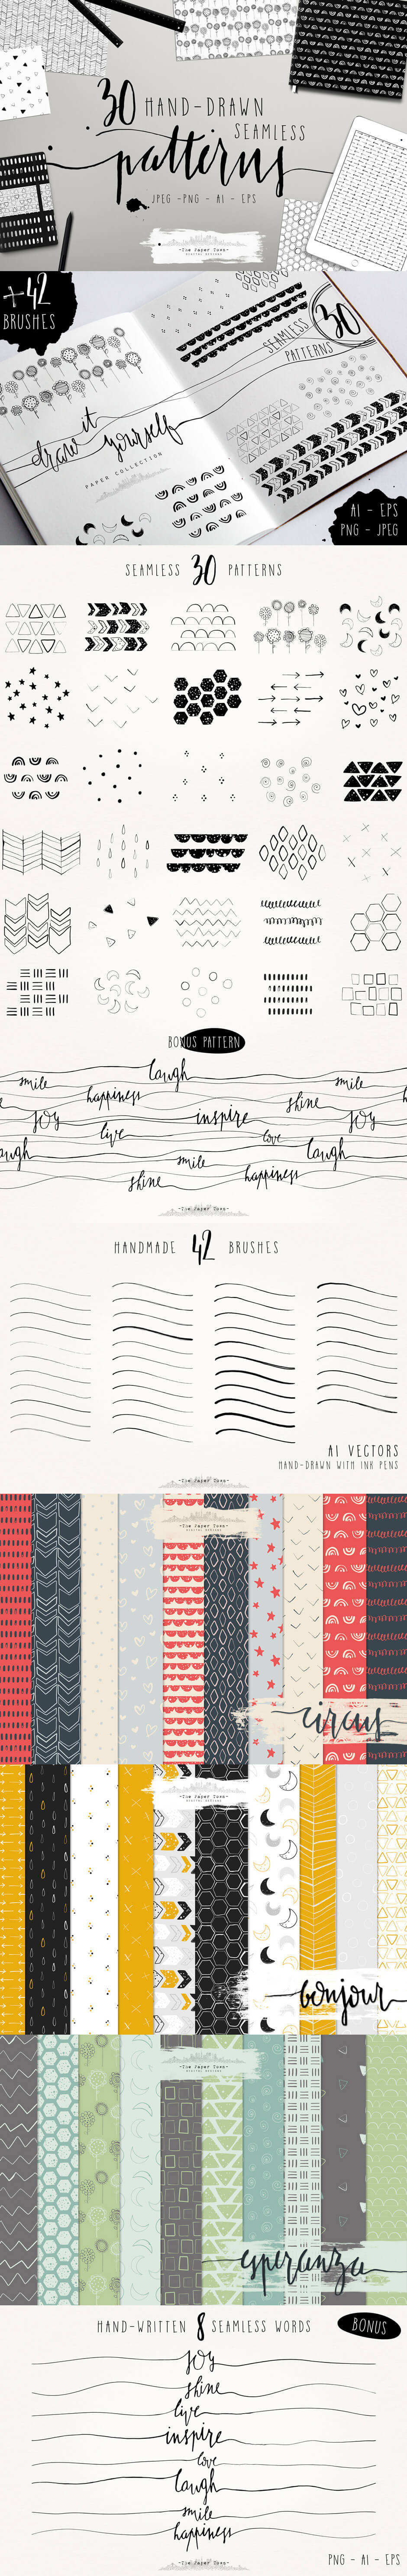 30 HAND-DRAWN
SEAMLESS
patterns
JPEG - PNG - AI - EPS
-The Paper Town-
DIGITAL DESIGNS
+42
BRUSHES
SEAMLESS 30
PATTERNS
draw it
yourself
PAPER COLLECTION
AI - EPS
PNG - JPEG
SEAMLESS 30 PATTERNS
BONUS PATTERN
laugh
smile
smile
happiness
shine
joy
inspire
joy
live
love
laugh
laugh
smile
shine
happiness
-The Paper Town-
HANDMADE 42 BRUSHES
AI VECTORS
HAND-DRAWN WITH INK PENS
-The Paper Town-
-The Paper Town-
DIGITAL DESIGNS
circus
-The Paper Town-
DIGITAL DESIGNS
bonjour
-The Paper Town-
DIGITAL DESIGNS
esperanza
HAND-WRITTEN 8 SEAMLESS WORDS
BONUS
joy
shine
live
inspire
love
laugh
smile
happiness
PNG - AI - EPS
-The Paper Town-